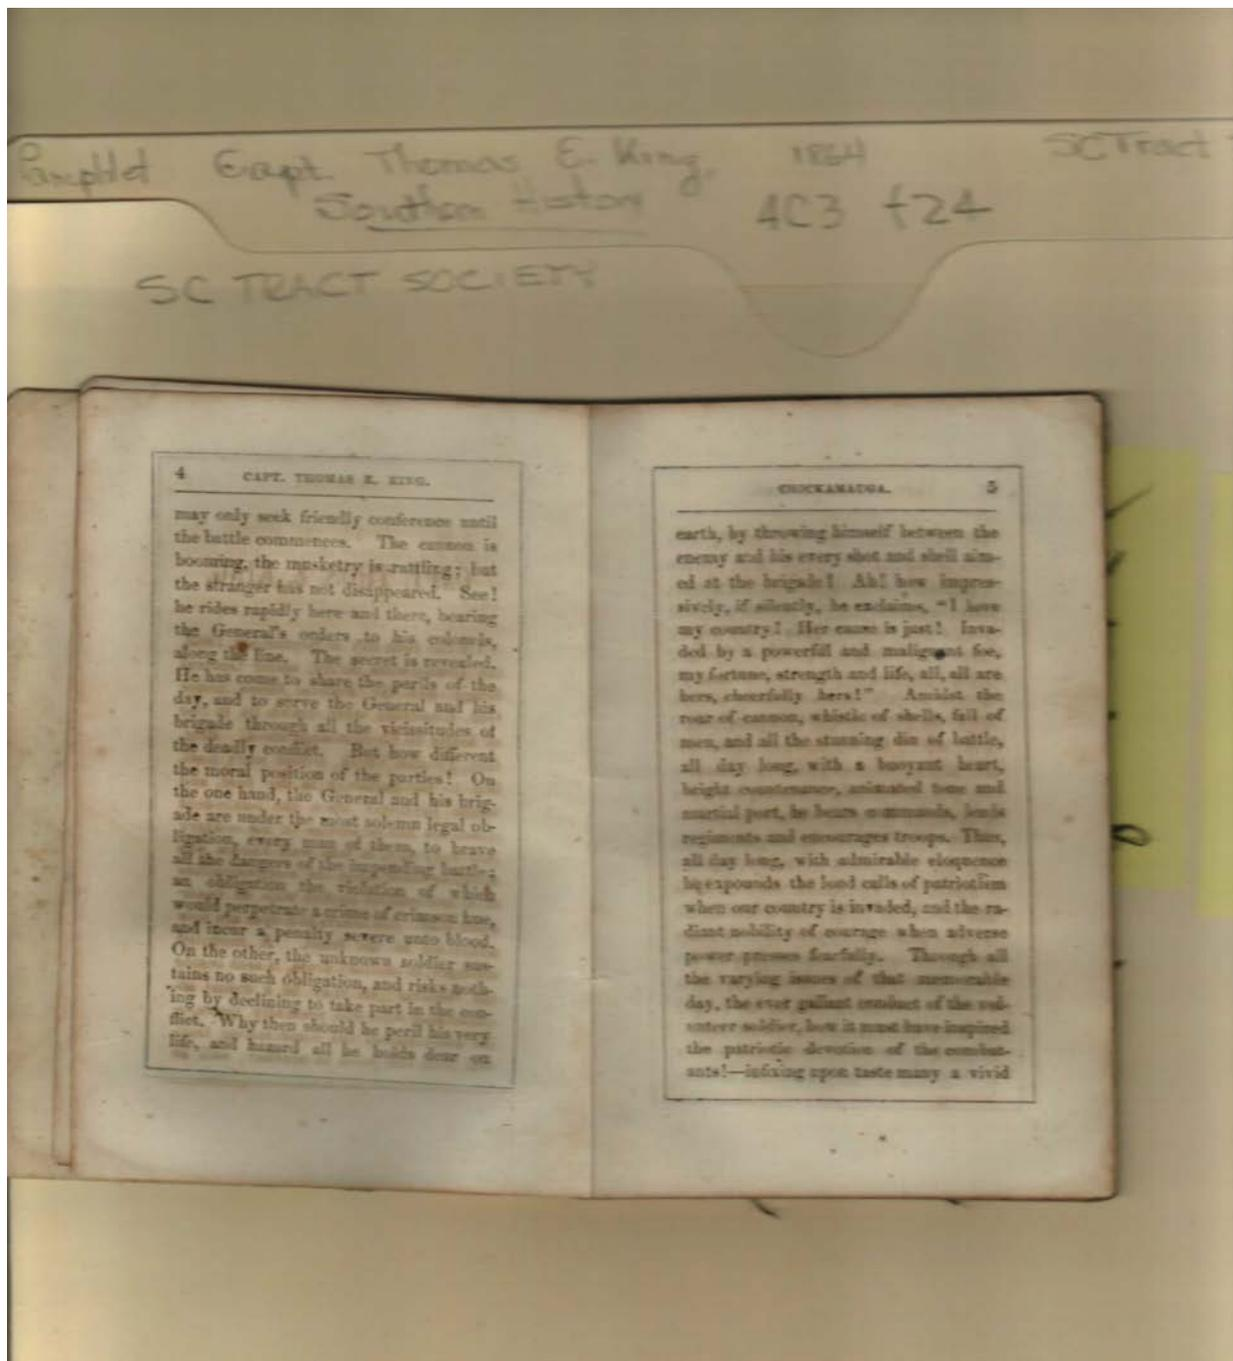 Pamphlet Capt. Thomas E. King, 1864 SC Tract
Southern History 4C3 t24
SC TRACT SOCIETY
4 CAPT. THOMAS E. KING.
may only seek friendly conference until
the battle commences. The cannon is
booming, the musketry is rattling; but
the stranger has not disappeared. See!
he rides rapidly here and there, bearing
the General's orders to his colonels,
along the line. The secret is revealed.
He has come to share the perils of the
day, and to serve the General and his
brigade through all the vicissitudes of
the deadly conflict. But how different
the moral position of the parties! On
the one hand, the General and his brig-
ade are under the most solemn legal ob-
ligation, every man of them, to brave
all the dangers of the impending battle;
an obligation the violation of which
would perpetrate a crime of crimson hue,
and incur a penalty severe unto blood.
On the other, the unknown soldier sus-
tains no such obligation, and risks noth-
ing by declining to take part in the con-
flict. Why then should he peril his very
life, and hazard all he holds dear on
CHICKAMAUGA. 5
earth, by throwing himself between the
enemy and his every shot and shell aim-
ed at the brigade! Ah! how impres-
sively, if silently, he exclaims, "I love
my country! Her cause is just! Inva-
ded by a powerful and malignant foe,
my fortune, strength and life, all, all are
hers, cheerfully hers!" Amidst the
roar of cannon, whistle of shells, fall of
men, and all the stunning din of battle,
all day long, with a buoyant heart,
bright countenance, animated tone and
martial port, he bears commands, leads
regiments and encourages troops. Thus,
all day long, with admirable eloquence
he expounds the loud calls of patriotism
when our country is invaded, and the ra-
diant nobility of courage when adverse
power presses fearfully. Through all
the varying issues of that memorable
day, the ever gallant conduct of the vol-
unteer soldier, how it must have inspired
the patriotic devotion of the combat-
ants!—infixing upon taste many a vivid